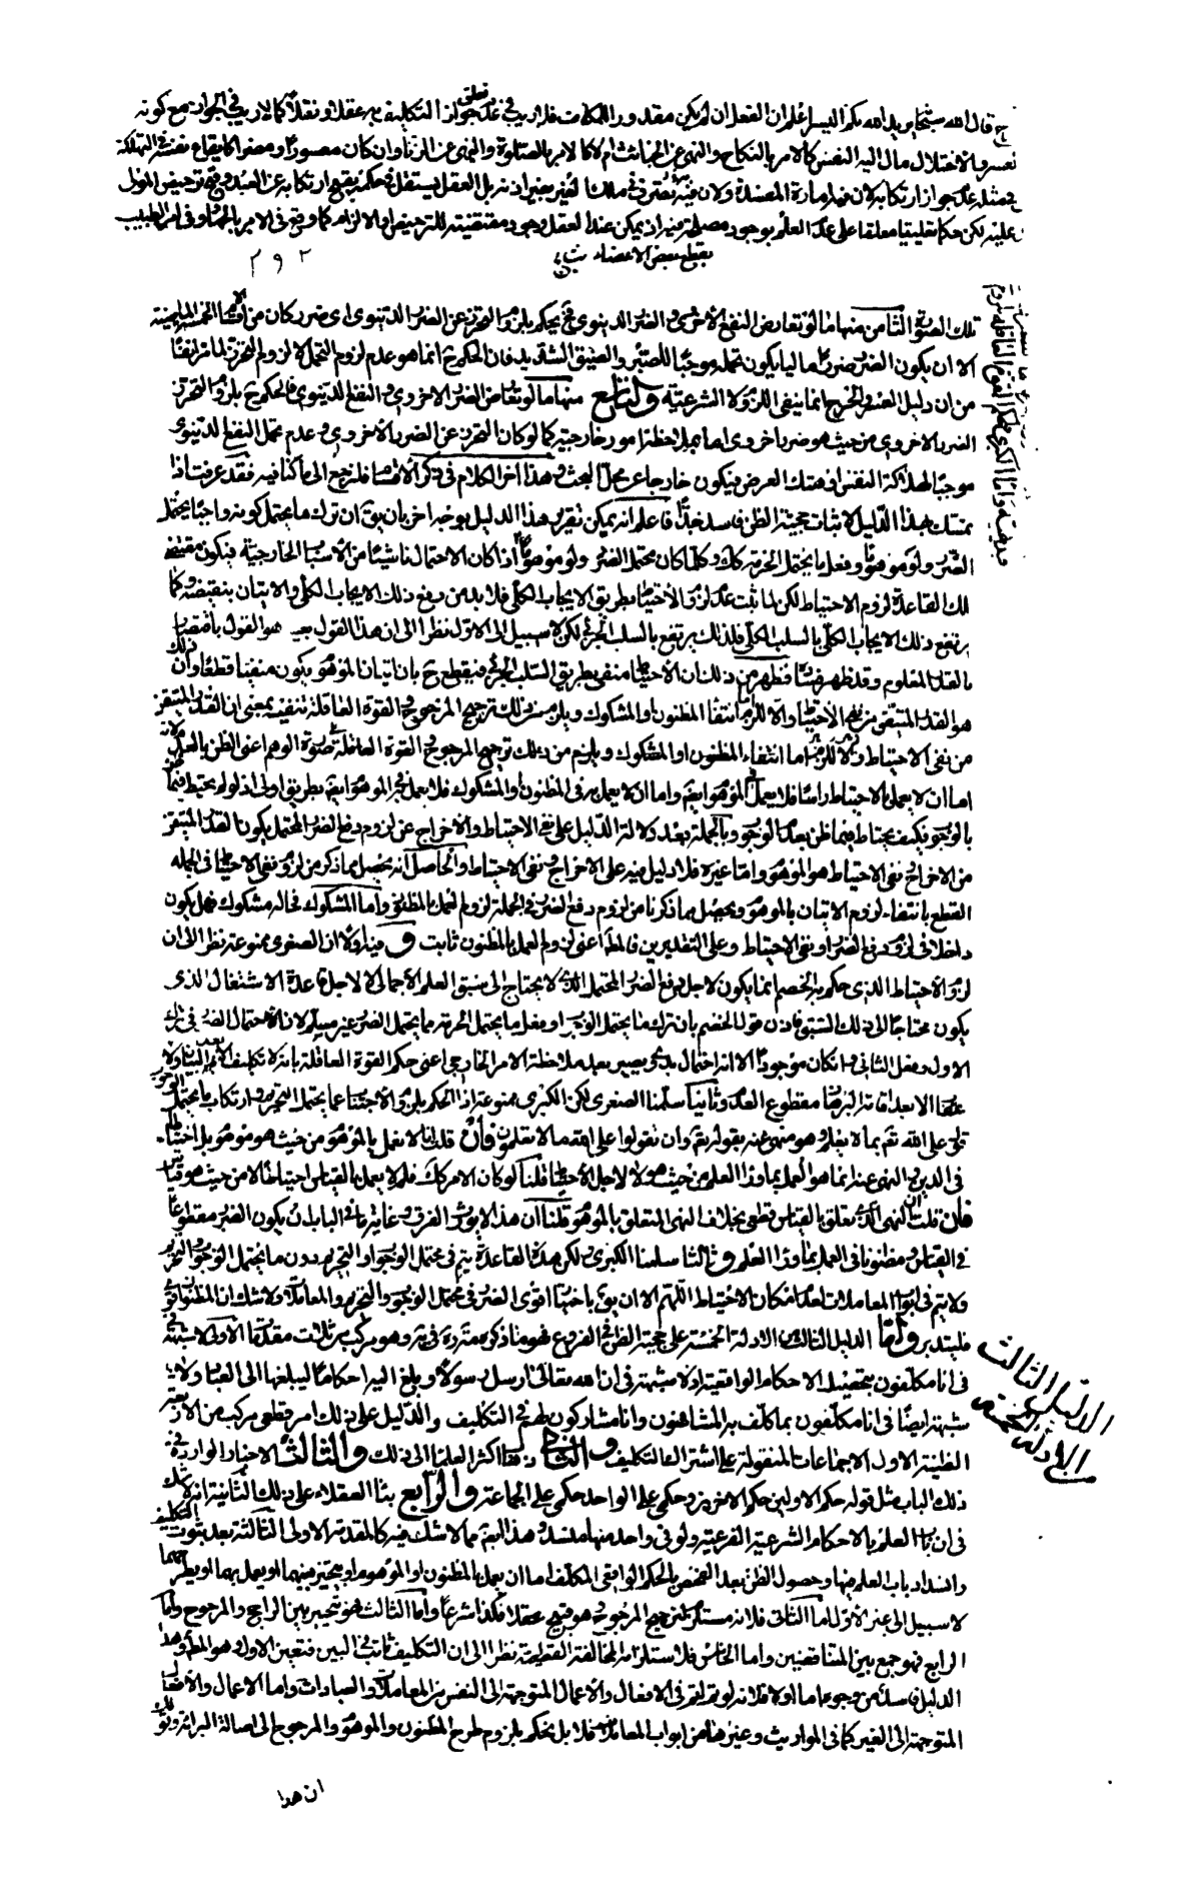 ح قال الله سبحانه يريد الله بكم اليسر اعلم ان الفعل ان لم يكن مقدورا للمكلف فلا ريب في عدم جواز تعلق التكليف به عقلا ونقلا كما لا ريب في الجواز مع كونه
نفسه في التهلكة
عليه لكن حكما تعليقيا معلقا على عدم العلم بوجود مصلحة فيه اذ يمكن عند العقل وجود مقتضية للترخيص او الالزام كما وقع في الامر بالجهاد وفي امر الطبيب
بقطع بعض الاعضاء
٢٩٢
تلك الصورة الثامن منها ما لو تعارض النفع الاخروي والضرر الدنيوي فح يحكم بلزوم التحرز عن الضرر الدنيوي اى ضرر كان من الاقسام الخمسة
الا ان يكون الضرر ضررا ماليا يكون تحمله موجبا للعسر والضيق الشديد فان الحكم ح انما هو عدم لزوم التحمل لا لزوم التحرز لما مر ايضا
من ان دليل العسر والحرج انما ينفي اللزوم لا الشرعية والتاسع منها ما لو تعارض الضرر الاخروي والنفع الدنيوي فالحكم ح بلزوم التحرز
الضرر الاخروي من حيث هو ضرر اخروى اما بملاحظة امور خارجية كما لو كان التحرز عن الضرر الاخروي وعدم تحمل النفع الدنيوي
موجبا لهلاكة النفس او هتك العرض فيكون خارجا عن محل البحث وهذا اخر الكلام في ذكر الاقسام فلنرجع الى ما كنا فيه فقد عرفت اذا
تمسك بهذا الدليل لاثبات حجية الظن فاسد جدا فاعلم انه يمكن تقرير هذا الدليل بوجه اخر بان يق ان ترك ما يحتمل كونه واجبا يحتمل
الضرر ولو موهوما وفعل ما يحتمل الحرمة كك وكلما كان محتمل الضرر ولو موهوما اذا كان الاحتمال ناشئا من الاسباب الخارجية فيكون مقتضى
تلك القاعدة لزوم الاحتياط لكن لما ثبت عدم لزوم الاحتياط بطريق الايجاب الكلي فلا بد من رفع ذلك الايجاب الكلي والاتيان بنقيضه وكما
يرتفع ذلك الايجاب الكلي بالسلب الكلي فلذلك يرتفع بالسلب الجزئي لكن لا سبيل الى الاول نظرا الى ان هذا القول هو القول
بالقدر المعلوم وقد ظهر فساده فظهر من ذلك ان الاحتياط منفي بطريق السلب الجزئي فنقطع ح بان اتيان الموهوم يكون منفيا قطعا وان ذلك
هو القدر المتيقن من نفي الاحتياط والا للزم انتفاء المظنون او المشكوك ويلزم من ذلك ترجيح المرجوح القوة العاقلة تنفيه بمعنى ان القدر المتيقن
من نفي الاحتياط والا للزم اما انتفاء المظنون او المشكوك ويلزم من ذلك ترجيح المرجوح القوة العاقلة صورة الوهم اعنى الظن بالعدم لانه
اما ان لا يعمل بالاحتياط راسا فلا يعمل في الموهوم ايضا واما ان لا يعمل به في المظنون والمشكوك فلا يعمل في الموهوم ايضا بطريق اولى اذ لو لم يحتط فيما ظن
بالوجوب فكيف يحتاط فيما ظن بعدم الوجوب وبالجملة بعد دلالة الدليل على نفي الاحتياط والاخراج عن لزوم دفع الضرر المحتمل يكون القدر المتيقن
من الاخراج نفي الاحتياط هو الموهوم واما غيره فلا دليل فيه على الاخراج ونفي الاحتياط والحاصل انه يحصل مما ذكر من لزوم نفي الاحتياط في الجملة
القطع بانتفاء لزوم الاتيان بالموهوم ويحصل مما ذكرنا من لزوم دفع الضرر في الجملة لزوم العمل بالمظنون واما المشكوك فحاله مشكوك فهل يكون
داخلا في لزوم دفع الضرر او نفي الاحتياط وعلى التقديرين فالمط اعني لزوم العمل بالمظنون ثابت وفيه اولا ان الصغرى ممنوعة نظرا الى ان
لزوم الاحتياط الذي حكم به الخصم انما يكون لاجل دفع الضرر المحتمل الذي لا يحتاج الى سبق العلم الاجمالي لا لاجل قاعدة الاشتغال الذي
يكون محتاجا الى ذلك السبق فاذن قول الخصم بان ترك ما يحتمل الوجوب او فعل ما يحتمل الحرمة مما يحتمل الضرر غير مسلم لان احتمال الضرر في ترك
الاول وفعل الثاني وان كان موجودا الا انه احتمال بدوي يصير بعد ملاحظة الامر الخارجي اعنى حكم القوة العاقلة بانه لا تكليف الا بعد البيان ولا
عقاب الا بعد اقامة البرهان مقطوع العدم وثانيا سلمنا الصغرى لكن الكبرى ممنوعة اذ الحكم بلزوم الاجتناب عما يحتمل التحريم وارتكاب ما يحتمل الوجوب
قول على الله تع بما لا يعلم وهو منهي عنه بقوله تع وان تقولوا على الله ما لا تعلمون فان قلت انا لا نعمل بالموهوم من حيث هو موهوم بل احتياطا
في الدين والمنهي عنه انما هو العمل بما وراء العلم من حيث هو لا لاجل الاحتياط قلنا لو كان الامر كك فلم لا يعمل بالقياس احتياطا لا من حيث هو قياس
فان قلت ان النهي الذي تعلق بالقياس قطعي بخلاف النهي المتعلق بالموهوم قلنا ان هذا لا يورث الفرق وغاية ما في الباب ان يكون الضرر مقطوعا
في القياس ومظنونا في العمل بما وراء العلم وثالثا سلمنا الكبرى لكن هذه القاعدة يتم في محتمل الوجوب او التحريم دون ما يحتمل الوجوب والتحريم
ولا يتم في ابواب المعاملات لعدم امكان الاحتياط اللهم الا ان يق باختيار اقوى الضررين في محتمل الوجوب والتحريم والمعاملات ولا شك ان المظنون اقوى
فليتدبر واما الدليل الثالث من الادلة الخمسة على حجية الظن في الفروع فهو ما ذكره وهو مركب من ثلاث مقدمات الاولى لا شبهة في
في انا مكلفون بتحصيل الاحكام الواقعية اذ لا شبهة في ان الله تعالى ارسل رسولا وبلغ اليه احكاما ليبلغها الى العباد ولا
شبهة ايضا في انا مكلفون بما كلف به المشافهون وانا مشاركون لهم في التكليف والدليل على ذلك امر قطعي مركب من الاربعة
الظنية الاول الاجماعات المنقولة على اشتراك التكليف والثاني ذهاب اكثر العلماء الى ذلك والثالث الاخبار الواردة في
ذلك الباب مثل قوله حكم الاولين حكم الاخرين وحكمي على الواحد حكمي على الجماعة والرابع بناء العقلاء على ذلك الثانية انه لا شك
في ان باب العلم بالاحكام الشرعية الفرعية ولو في واحد منها منسد وهذا ايضا مما لا شك فيه كالمقدمة الاولى الثالثة بعد ثبوت التكليف
وانسداد باب العلم فيها وحصول الظن بعد الفحص بالحكم الواقعي المكلف اما ان يعمل بالمظنون او الموهوم او يتخير بينهما او يعمل بهما او يطرحهما
لا سبيل الى غير الاول اما الثاني فلانه مستلزم لترجيح المرجوح وهو قبيح عقلا فكذا شرعا واما الثالث فهو تخيير بين الراجح والمرجوح واما
الرابع فهو جمع بين المتناقضين واما الخامس فلاستلزامه المخالفة القطعية نظرا الى ان التكليف ثابت في البين فتعين الاول وهو المط وهذا
الدليل فاسد من وجوه اما اولا فلانه لو تم لتم في الافعال والاعمال المتوجهة الى النفس من المعاملات والعبادات واما الاعمال والافعال
المتوجهة الى الغير كما في المواريث وغيرها من ابواب المعاملات فلا بل نحكم بلزوم طرح المظنون والموهوم والمرجوع الى اصالة البرائة
ان هذا
الدليل الثالث
من الادلة الخمسة